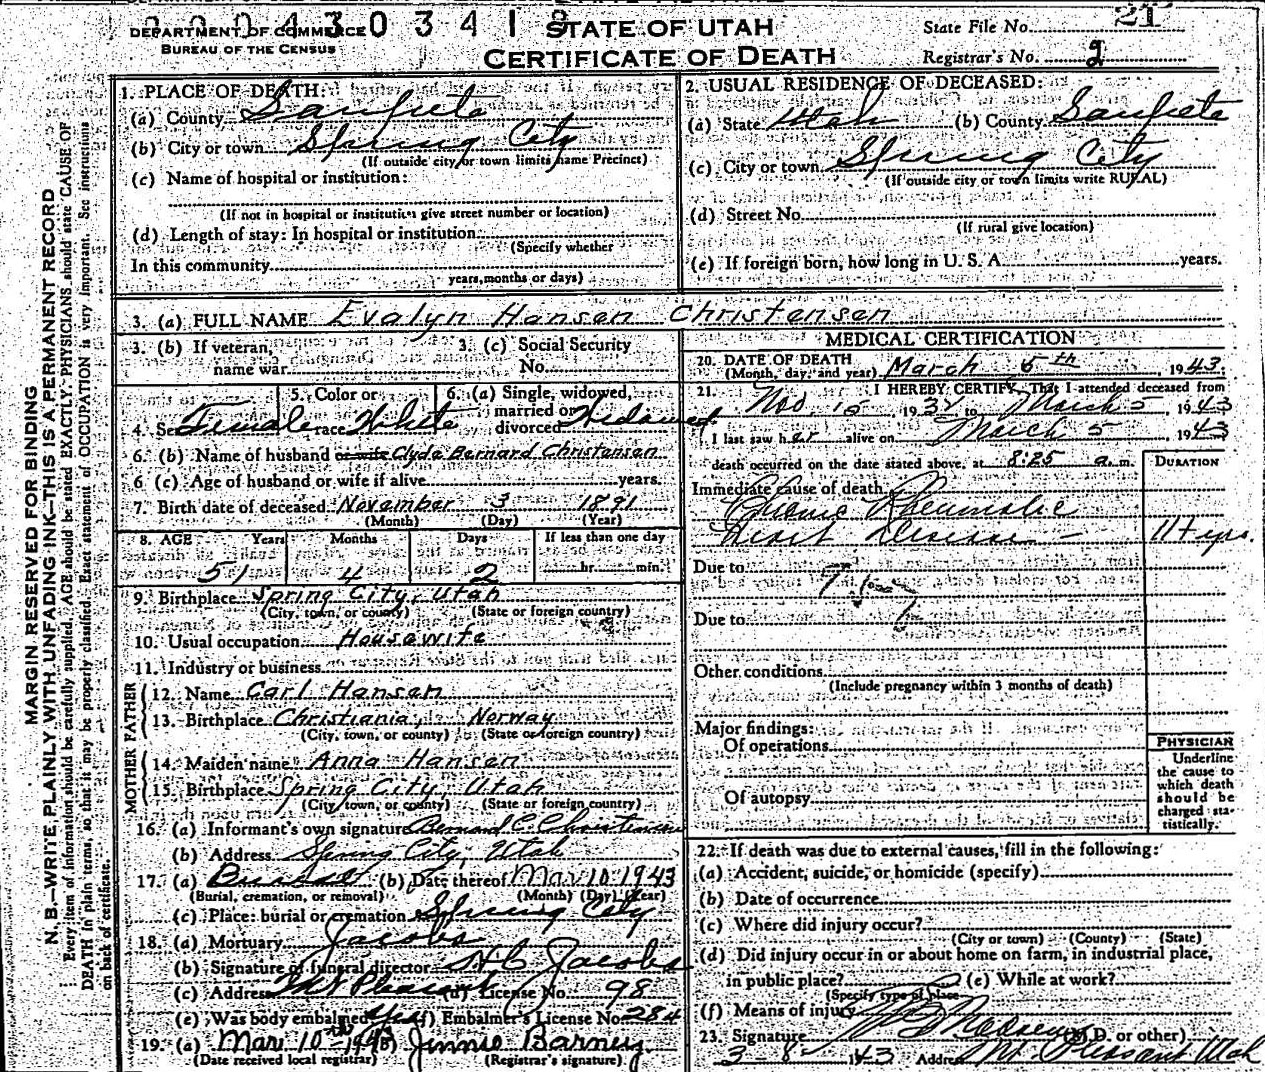 DEPARTMENT OF COMMERCE
BUREAU OF THE CENSUS
STATE OF UTAH
CERTIFICATE OF DEATH
State File No. 21
Registrar's No. 2
MARGIN RESERVED FOR BINDING
N. B.—WRITE PLAINLY WITH UNFADING INK—THIS IS A PERMANENT RECORD
Every item of information should be carefully supplied. AGE should be stated EXACTLY. PHYSICIANS should state CAUSE OF
DEATH in plain terms, so that it may be properly classified. Exact statement of OCCUPATION is very important. See instructions
on back of certificate.
1. PLACE OF DEATH:
(a) County Sanpete
(b) City or town Spring City
(If outside city or town limits name Precinct)
(c) Name of hospital or institution:
(If not in hospital or institution give street number or location)
(d) Length of stay: In hospital or institution
(Specify whether
In this community
years, months or days)
2. USUAL RESIDENCE OF DECEASED:
(a) State Utah (b) County Sanpete
(c) City or town Spring City
(If outside city or town limits write RURAL)
(d) Street No.
(If rural give location)
(e) If foreign born, how long in U. S. A. years.
3. (a) FULL NAME Evalyn Hansen Christensen
3. (b) If veteran, name war
3. (c) Social Security No.
4. Sex Female
5. Color or race White
6. (a) Single, widowed, married or divorced Widowed
6. (b) Name of husband or wife Clyde Bernard Christensen
6 (c) Age of husband or wife if alive years.
7. Birth date of deceased November 3 1891
(Month) (Day) (Year)
8. AGE Years Months Days If less than one day
51 4 2 hr. min.
9. Birthplace Spring City, Utah
(City, town, or county) (State or foreign country)
10. Usual occupation Housewife
11. Industry or business
FATHER
12. Name Carl Hansen
13. Birthplace Christiania, Norway
(City, town, or county) (State or foreign country)
MOTHER
14. Maiden name Anna Hansen
15. Birthplace Spring City, Utah
(City, town, or county) (State or foreign country)
16. (a) Informant's own signature Bernard C. Christensen
(b) Address Spring City, Utah
17. (a) Burial (b) Date thereof Mar 10 1943
(Burial, cremation, or removal) (Month) (Day) (Year)
(c) Place: burial or cremation Spring City
18. (a) Mortuary Jacobs
(b) Signature of funeral director H C Jacobs
(c) Address Mt Pleasant (d) License No. 98
(e) Was body embalmed yes (f) Embalmer's License No. 284
19. (a) Mar 10 1943 (b) Jinnie Barney
(Date received local registrar) (Registrar's signature)
MEDICAL CERTIFICATION
20. DATE OF DEATH
(Month, day, and year) March 5th, 1943.
21. I HEREBY CERTIFY, That I attended deceased from
Nov 15, 1932 to March 5, 1943
I last saw her alive on March 5, 1943
death occurred on the date stated above, at 8:25 a.m.
DURATION
Immediate cause of death
Chronic Rheumatic
Heart Disease — 11+ yrs.
Due to
Due to
Other conditions
(Include pregnancy within 3 months of death)
Major findings:
Of operations
Of autopsy
PHYSICIAN
Underline
the cause to
which death
should be
charged sta-
tistically.
22. If death was due to external causes, fill in the following:
(a) Accident, suicide, or homicide (specify)
(b) Date of occurrence
(c) Where did injury occur?
(City or town) (County) (State)
(d) Did injury occur in or about home on farm, in industrial place,
in public place? (e) While at work?
(Specify type of place
(f) Means of injury
23. Signature Madsen (M.D. or other)
3-8-43 Address Mt. Pleasant Utah